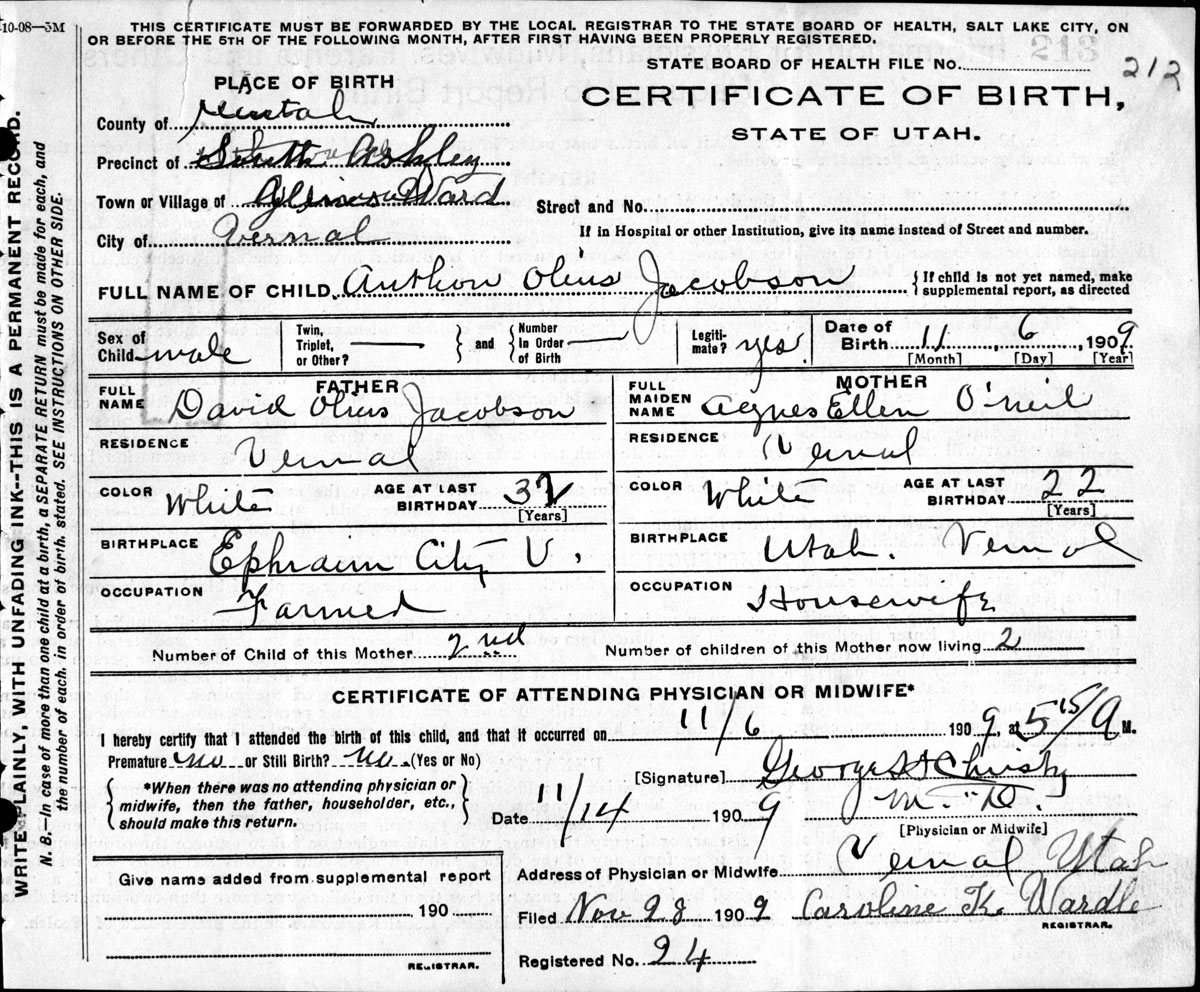 10-08—5M
THIS CERTIFICATE MUST BE FORWARDED BY THE LOCAL REGISTRAR TO THE STATE BOARD OF HEALTH, SALT LAKE CITY, ON
OR BEFORE THE 5TH OF THE FOLLOWING MONTH, AFTER FIRST HAVING BEEN PROPERLY REGISTERED.
STATE BOARD OF HEALTH FILE NO. 212
PLACE OF BIRTH
CERTIFICATE OF BIRTH,
STATE OF UTAH.
County of Uintah
Precinct of South Ashley
Town or Village of Glines Ward
Street and No.
City of Vernal
If in Hospital or other Institution, give its name instead of Street and number.
FULL NAME OF CHILD Anthon Olius Jacobson {If child is not yet named, make supplemental report, as directed
Sex of Child male
Twin, Triplet, or Other? — } and { Number In Order of Birth —
Legitimate? yes.
Date of Birth 11, 6, 1909.
[Month] [Day] [Year]
FATHER
FULL NAME David Olius Jacobson
RESIDENCE Vernal
COLOR White AGE AT LAST BIRTHDAY 32 [Years]
BIRTHPLACE Ephraim City U.
OCCUPATION Farmer
MOTHER
FULL MAIDEN NAME Agnes Ellen O'neil
RESIDENCE Vernal
COLOR White AGE AT LAST BIRTHDAY 22 [Years]
BIRTHPLACE Utah. Vernal
OCCUPATION Housewife
Number of Child of this Mother 2nd Number of children of this Mother now living 2
CERTIFICATE OF ATTENDING PHYSICIAN OR MIDWIFE*
I hereby certify that I attended the birth of this child, and that it occurred on 11/6 1909, at 5 15/ A M.
Premature no or Still Birth? no. (Yes or No)
{ *When there was no attending physician or midwife, then the father, householder, etc., should make this return. }
[Signature] George H Christy
M.D.
[Physician or Midwife]
Date 11/14 1909
Give name added from supplemental report
190
REGISTRAR.
Address of Physician or Midwife Vernal Utah
Filed Nov 28 1909 Caroline K. Wardle
REGISTRAR.
Registered No. 24
WRITE PLAINLY, WITH UNFADING INK--THIS IS A PERMANENT RECORD.
N. B.—In case of more than one child at a birth, a SEPARATE RETURN must be made for each, and
the number of each, in order of birth, stated. SEE INSTRUCTIONS ON OTHER SIDE.